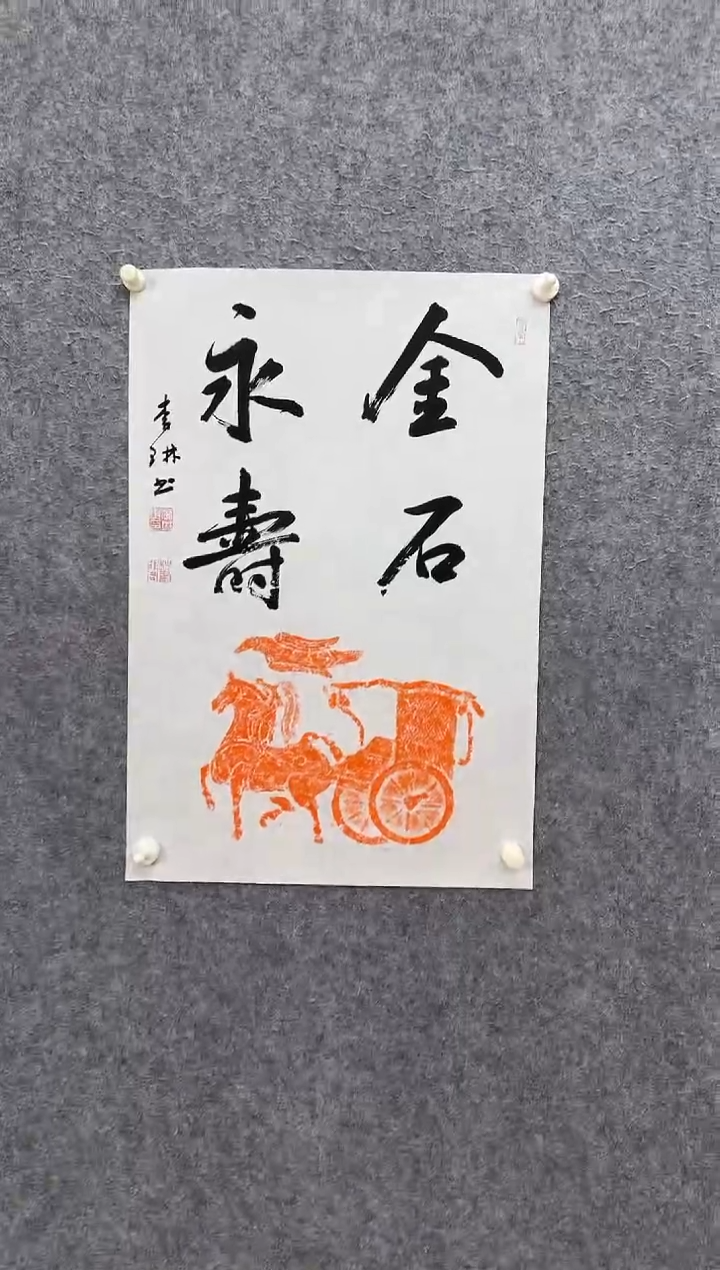 金石
永壽
李琳书